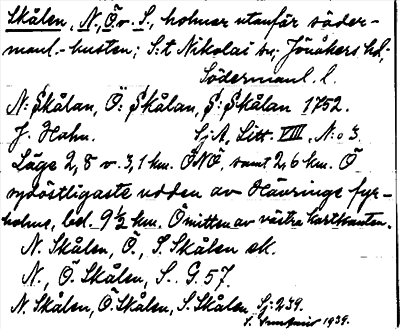 Skålen, N., Ö. v. S., holmar utanför söder-
manl.-kusten; S:t Nikolai sn, Jönåkers hd,
Södermanl. l.
N: Skålan, Ö: Skålan, S: Skålan 1752.
J. Hahn. Sj.A, Litt. VIII, N:o 3.
Läge 2,8 v. 3,1 km. ÖNÖ, samt 2,6 km. Ö
sydöstligaste udden av Hävringe fyr-
holme, bel. 9 ½ km. Ö mitten av västra kartkanten.
N. Skålen, Ö., S. Skålen ek.
N., Ö. Skålen, S. G. 57.
N. Skålen, Ö. Skålen, S. Skålen Sj: 239.
1939.